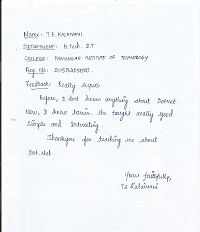 Name: T.E. KALAIVANI
DEPARTMENT: B.Tech. I.T
COLLEGE: PANIMALAR INSTITUTE OF TECHNOLOGY
Reg. No:
Feedback: Really super.
Before, I dont know anything about Dotnet.
Now, I know basics. He taught really good.
Simple and Interesting.
Thankyou for teaching me about
Dot.net
Yours faithfully,
T.E Kalaivani